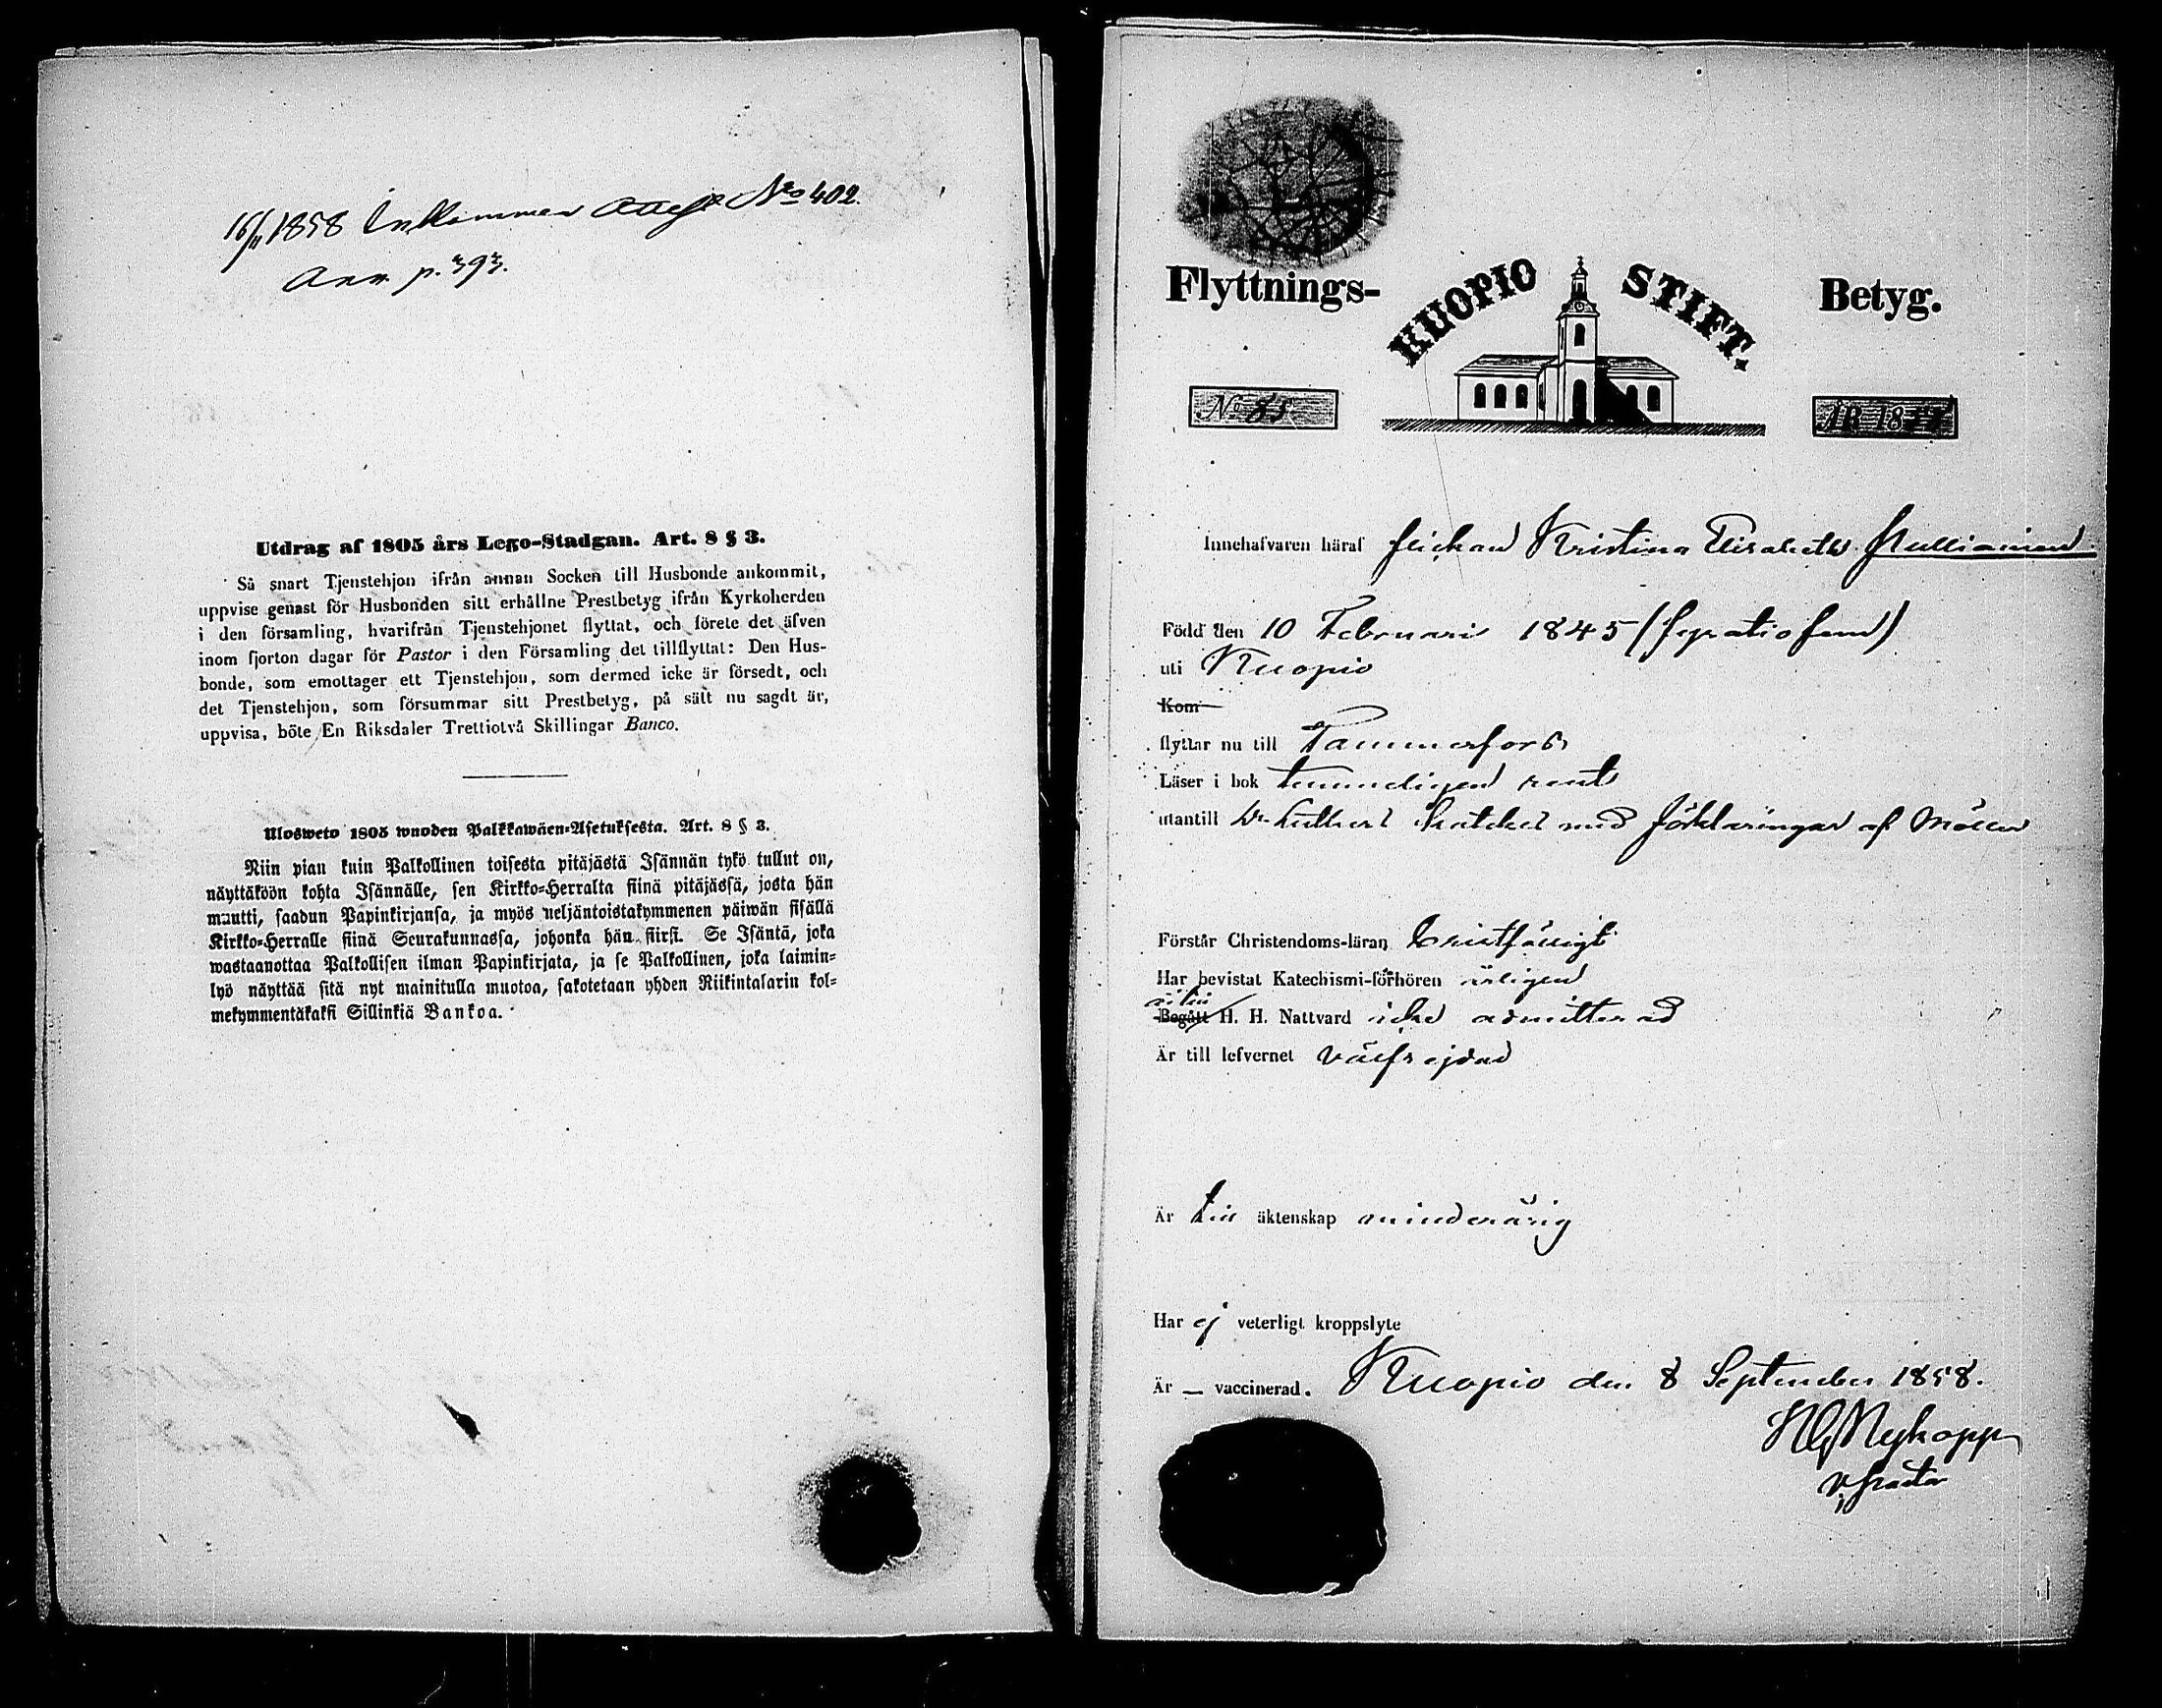 16/11 1858 Inkommen Attest No 402.
Ann. p. 393.
Utdrag af 1805 års Lego-Stadgan. Art. 8 § 3.
Så snart Tjenstehjon ifrån annan Socken till Husbonde ankommit,
uppvise genast för Husbonden sitt erhållne Prestbetyg ifrån Kyrkoherden
i den församling, hvarifrån Tjenstehjonet flyttat, och förete det äfven
inom fjorton dagar för Pastor i den Församling det tillflyttat: Den Hus-
bonde, som emottager ett Tjenstehjon, som dermed icke är försedt, och
det Tjenstehjon, som försummar sitt Prestbetyg, på sätt nu sagdt är,
uppvisa, böte En Riksdaler Trettiotvå Skillingar Banco.
Ulosweto 1805 wuoden Palkkawäen-Asetuksesta. Art. 8 § 3.
Niin pian kuin Palkollinen toisesta pitäjästä Isännän tykö tullut on,
näyttäköön kohta Isännälle, sen Kirkko-Herralta siinä pitäjässä, josta hän
muutti, saadun Papinkirjansa, ja myös neljäntoistakymmenen päiwän sisällä
Kirkko-Herralle siinä Seurakunnassa, johonka hän siirsi. Se Isäntä, joka
wastaanottaa Palkollisen ilman Papinkirjata, ja se Palkollinen, joka laimin-
lyö näyttää sitä nyt mainitulla muotoa, sakotetaan yhden Riikintalarin kol-
mekymmentäkaksi Sillinkiä Bankoa.
Flyttnings- KUOPIO STIFT. Betyg.
No 85 ÅR 1858
Innehafvaren häraf flickan Kristina Elisabeth
Född den 10 Februari 1845
uti Kuopio
Kom
flyttar nu till Tammerfors
Läser i bok temmeligen rent
utantill Dr Luthers Kateches med förklaringar af Möller
Förstår Christendoms-läran enfaldigt
Har bevistat Katechismi-förhören årligen
till
Begått H. H. Nattvard icke admitterad
Är till lefvernet välfrejdad
Är till äktenskap minderårig
Har ej veterligt kroppslyte
Är — vaccinerad. Kuopio den 8 September 1858.
HG Nykopp
v. pastor